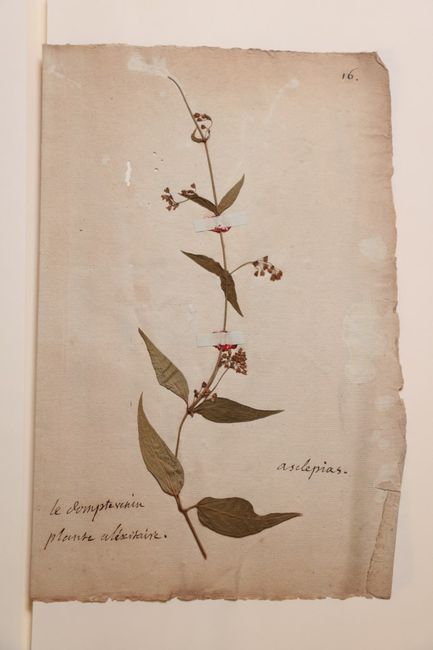 16.
asclepias.
le domptevenin
plante aléxitaire.